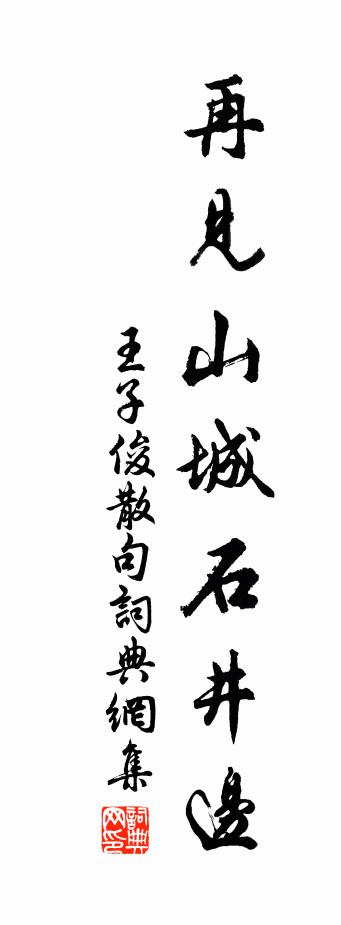 再見山城石井邊
王子俊散句詞典網集
詞典网印